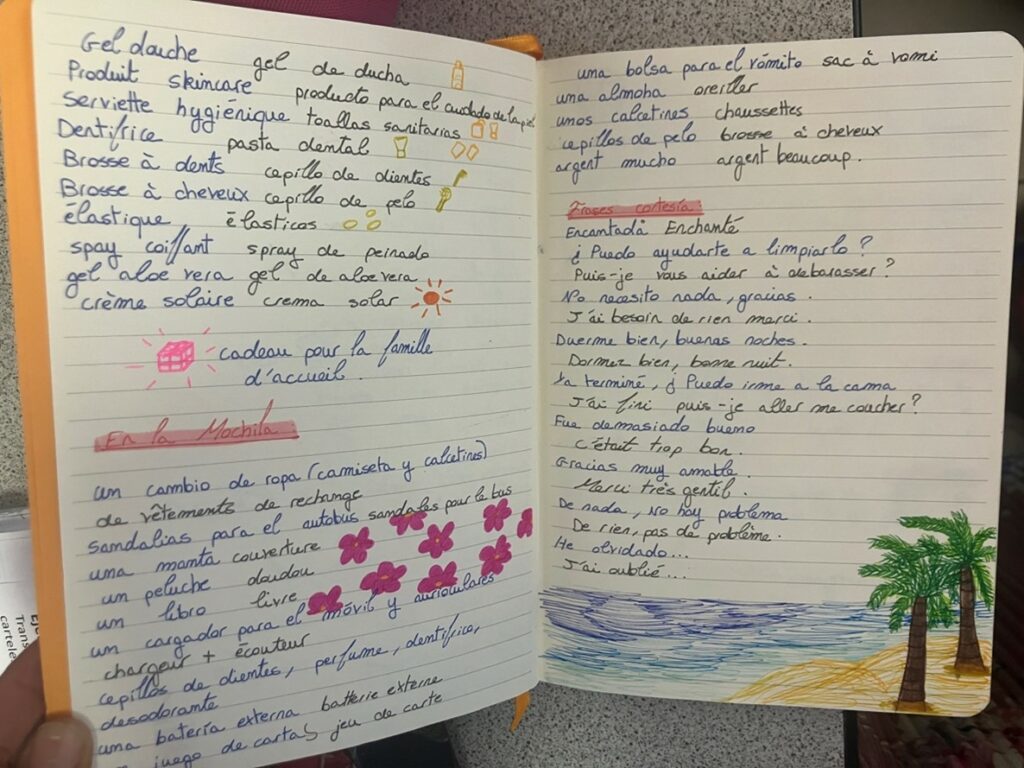 Gel douche gel de ducha
Produit skincare producto para el cuidado de la piel
Serviette hygiénique toallas sanitarias
Dentifrice pasta dental
Brosse à dents cepillo de dientes
Brosse à cheveux cepillo de pelo
élastique élasticos
spay coiffant spray de peinado
gel aloe vera gel de aloe vera
crème solaire crema solar
cadeau pour la famille
d'accueil.
En la Mochila
un cambio de ropa (camiseta y calcetines)
de vêtements de rechange
sandalias para el autobus sandales pour le bus
una manta couverture
un peluche doudou
un libro livre
un cargador para el móvil y auriculares
chargeur + écouteur
cepillos de dientes, perfume, dentifrico,
desodorante
una batería externa batterie externe
juego de cartas jeu de carte
una bolsa para el vómito sac à vomi
una almoha oreiller
unos calcetines chaussettes
cepillos de pelo brosse à cheveux
argent mucho argent beaucoup.
Frases cortesía
Encantada Enchanté
¿ Puedo ayudarte a limpiarlo ?
Puis-je vous aider à debarasser ?
No necesito nada, gracias.
J'ai besoin de rien merci.
Duerme bien, buenas noches.
Dormez bien, bonne nuit.
Ya terminé, ¿ Puedo irme a la cama
J'ai fini puis-je aller me coucher ?
Fue demasiado bueno
C'était trop bon.
Gracias muy amable.
Merci très gentil.
De nada, No hay problema
De rien, pas de problème.
He olvidado...
J'ai oublié...
Trans
cartele